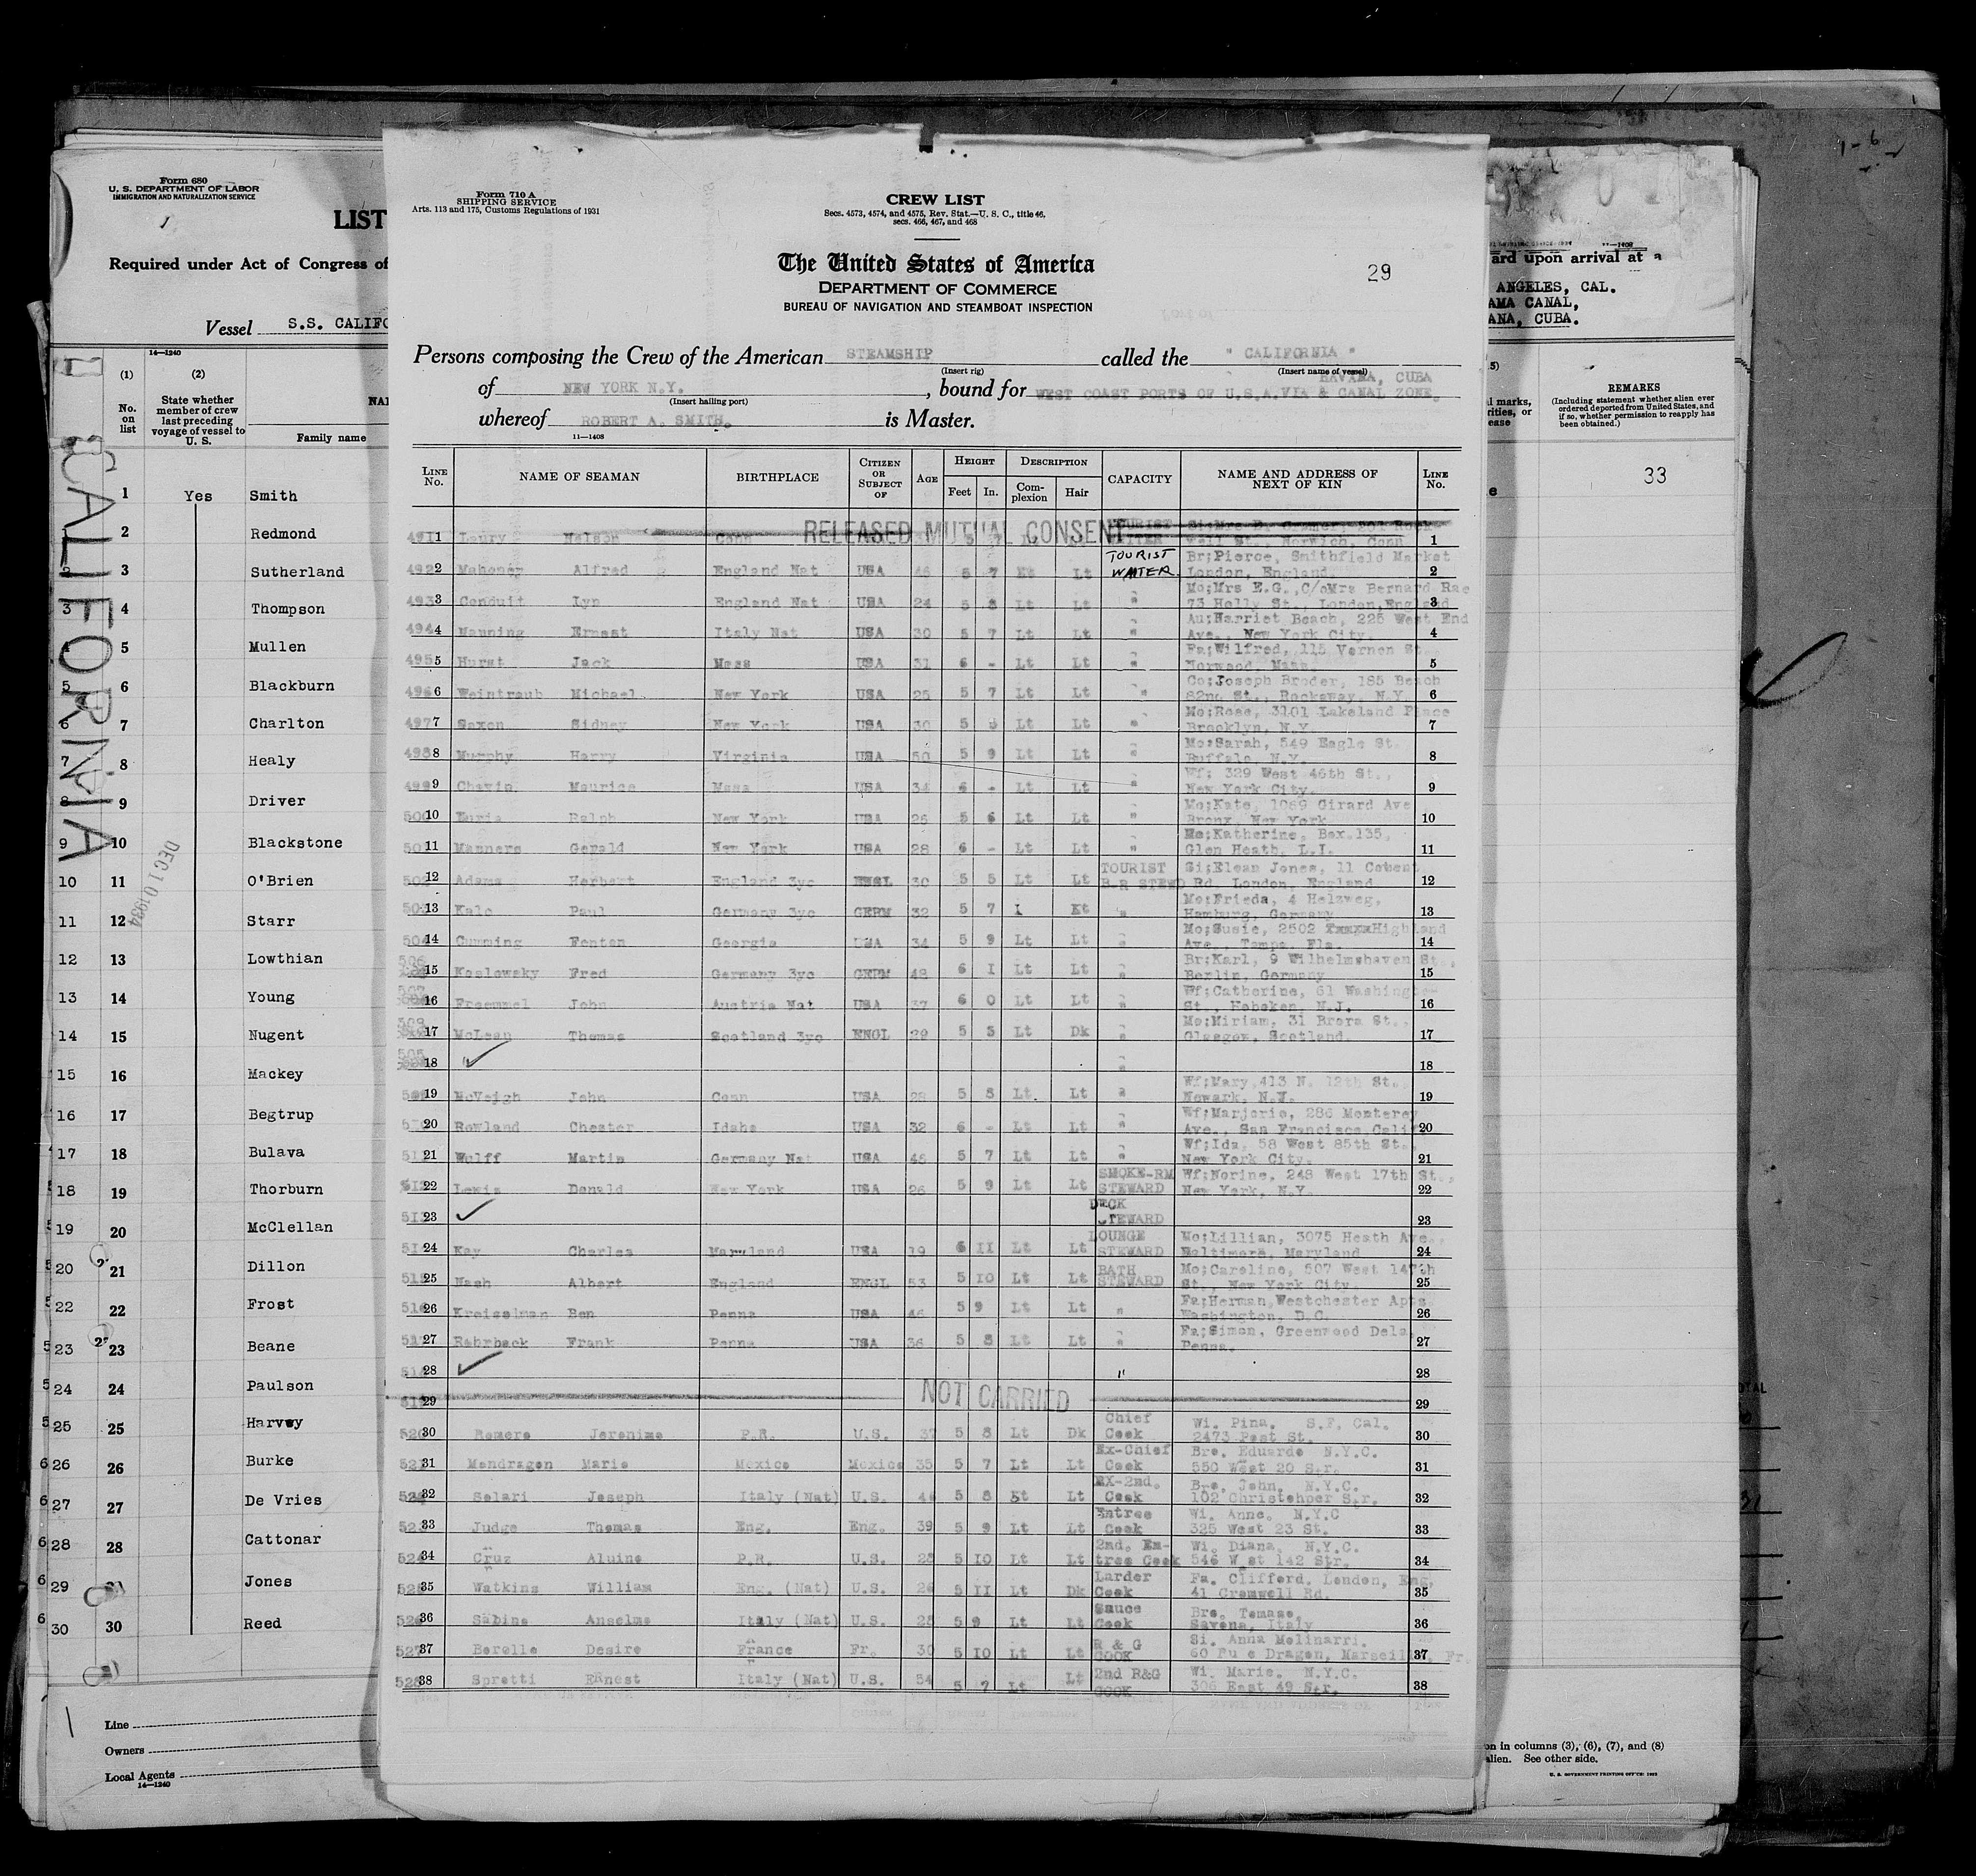 Form 680
U. S. DEPARTMENT OF LABOR
IMMIGRATION AND NATURALIZATION SERVICE
LIST
Required under Act of Congress of
Vessel S.S. CALIFO
14—1240
(1) (2)
No. on list
State whether member of crew last preceding voyage of vessel to U. S.
Family name
1 Yes Smith
2 Redmond
3 Sutherland
4 Thompson
5 Mullen
6 Blackburn
7 Charlton
8 Healy
9 Driver
10 Blackstone
11 O'Brien
12 Starr
13 Lowthian
14 Young
15 Nugent
16 Mackey
17 Begtrup
18 Bulava
19 Thorburn
20 McClellan
21 Dillon
22 Frost
23 Beane
24 Paulson
25 Harvey
26 Burke
27 De Vries
28 Cattonar
Jones
30 Reed
CALIFORNIA
DEC 10 1934
Line
Owners
Local Agents
14—1240
Form 710 A
SHIPPING SERVICE
Arts. 113 and 175, Customs Regulations of 1931
CREW LIST
Secs. 4573, 4574, and 4575, Rev. Stat.—U. S. C., title 46,
secs. 466, 467, and 468
The United States of America
DEPARTMENT OF COMMERCE
BUREAU OF NAVIGATION AND STEAMBOAT INSPECTION
29
Persons composing the Crew of the American STEAMSHIP called the " CALIFORNIA "
(Insert rig) (Insert name of vessel)
HAVANA, CUBA
of NEW YORK N.Y. , bound for WEST COAST PORTS OF U.S.A.VIA & CANAL ZONE.
(Insert hailing port)
whereof ROBERT A. SMITH. is Master.
11—1408
LINE No. NAME OF SEAMAN BIRTHPLACE CITIZEN OR SUBJECT OF AGE HEIGHT Feet In. DESCRIPTION Complexion Hair CAPACITY NAME AND ADDRESS OF NEXT OF KIN LINE No.
RELEASED MUTUAL CONSENT
1 Laury Nelson Conn 1
TOURIST Br;Pierce, Smithfield Market
2 Mahoney Alfred England Nat USA 46 5 7 Lt WAITER. London, England 2
Mo;Mrs E.G.,C/oMrs Bernard Rae
3 Conduit Lyn England Nat USA 24 5 8 Lt Lt " 73 Holly St., London,England 3
Au;Harriet Beach, 225 West End
4 Manning Ernest Italy Nat USA 30 5 7 Lt Lt " Ave., New York City. 4
Fa;Wilfred, 115 Vernon St.
5 Hurst Jack Mass USA 31 6 - Lt Lt " Norwood, Mass. 5
Co;Joseph Broder, 185 Beach
6 Weintraub Michael New York USA 25 5 7 Lt Lt " 82nd St., Rockaway, N.Y. 6
Mo;Rose, 3101 Lakeland Place
7 Saxon Sidney New York USA 30 5 Lt Lt " Brooklyn, N.Y. 7
Mo;Sarah, 549 Eagle St.
8 Murphy Harry Virginia USA 50 5 9 Lt Lt " Buffalo, N.Y. 8
Wf; 329 West 46th St.,
9 Maurice Mass USA 34 6 - Lt Lt " New York City. 9
Mo;Kate, 1069 Girard Ave
10 Ralph New York USA 26 5 6 Lt Lt " Bronx, New York. 10
Mo;Katherine, Box 135,
11 Manners Gerald New York USA 28 6 - Lt Lt " Glen Heath, L.I. 11
TOURIST Si;Elean Jones, 11 Covent
12 Adams Herbert England 3yc ENGL 30 5 5 Lt Lt B-R STEWD Rd, London, England 12
Mo;Frieda, 4 Holzweg,
13 Kalc Paul Germany 3yc GERM 32 5 7 " Hamburg, Germany 13
Mo;Susie, 2502 Highland
14 Cumming Fenton Georgia USA 34 5 9 Lt Lt " Ave., Tampa, Fla. 14
Br;Karl, 9 Wilhelmshaven St.,
15 Koslowsky Fred Germany 3yc GERM 48 6 1 Lt Lt " Berlin, Germany 15
Wf;Catherine, 61 Washington
16 Froemmel John Austria Nat USA 37 6 0 Lt Lt " St., Hoboken, N.J. 16
Mo;Miriam, 31 Brora St.,
17 McLean Thomas Scotland 3yc ENGL 29 5 5 Lt Dk " Glasgow, Scotland. 17
18 ✓ " 18
Wf;Mary,413 N. 12th St.,
19 McVeigh John Conn USA 28 5 8 Lt. Lt " Newark, N.J. 19
Wf;Marjorie, 286 Monterey
20 Rowland Chester Idaho USA 32 6 - Lt Lt " Ave., San Francisco,Calif 20
Wf;Ida, 58 West 85th St.,
21 Wulff Martin Germany Nat USA 45 5 7 Lt Lt " New York City. 21
SMOKE-RM Wf;Norine, 248 West 17th St.,
22 Lewis Donald New York USA 26 5 9 Lt Lt STEWARD New York, N.Y. 22
DECK
23 ✓ STEWARD 23
LOUNGE Mo;Lillian, 3075 Heath Ave.,
24 Kay Charles Maryland USA 19 6 11 Lt Lt STEWARD Baltimore, Maryland 24
BATH Mo;Caroline, 507 West 147th
25 Nash Albert England ENGL 53 5 10 Lt Lt STEWARD St., New York City. 25
Fa;Herman,Westchester Apts.
26 Kreiselman Ben Penna USA 46 5 9 Lt Lt " Washington, D.C. 26
Fa;Simon, Greenwood Dela,
27 Rohrback Frank Penna USA 36 5 8 Lt Lt " Penna. 27
28 ✓ " 28
29 NOT CARRIED 29
Chief Wi. Pina. S.F. Cal.
30 Romero Jeronimo P.R. U.S. 37 5 8 Lt Dk Cook 2473 Post St. 30
Ex-Chief Bro. Eduardo N.Y.C.
31 Mondragon Mario Mexico Mexico 35 5 7 Lt Lt Cook 550 West 20 Str. 31
EX-2nd. Bro. John. N.Y.C.
32 Solari Joseph Italy (Nat) U.S. 5 8 Lt Cook 102 Christohper Str. 32
Entree Wi. Anne. N.Y.C
33 Judge Thomas Eng. Eng. 39 5 9 Lt Lt Cook 325 West 23 St. 33
2nd. En- Wi. Diana. N.Y.C.
34 Cruz Aluino P.R. U.S. 28 5 10 Lt Lt tree Cook 546 W st 142 Str. 34
Larder Fa. Clifford. London, Eng.
35 Watkins William Eng. (Nat) U.S. 5 11 Lt Dk Cook 41 Cromwell Rd. 35
Sauce Bro. Tomaso.
36 Sabino Anselmo Italy (Nat) U.S. 28 5 9 Lt Lt Cook Savona, Italy 36
R & G Si. Anna Molinarri.
37 Borello Desire France Fr. 30 5 10 Lt Lt COOK 60 Ru e Dragon, Marseille, Fr. 37
2nd R&G Wi. Marie. N.Y.C.
38 Spretti Ernest Italy (Nat) U.S. 54 5 7 Lt Lt COOK 306 East 49 Str. 38
ard upon arrival at a
ANGELES, CAL.
AMA CANAL,
ANA, CUBA.
REMARKS
(Including statement whether alien ever ordered deported from United States, and if so, whether permission to reapply has been obtained.)
33
on in columns (3), (6), (7), and (8)
alien. See other side.
U. S. GOVERNMENT PRINTING OFFICE: 1933